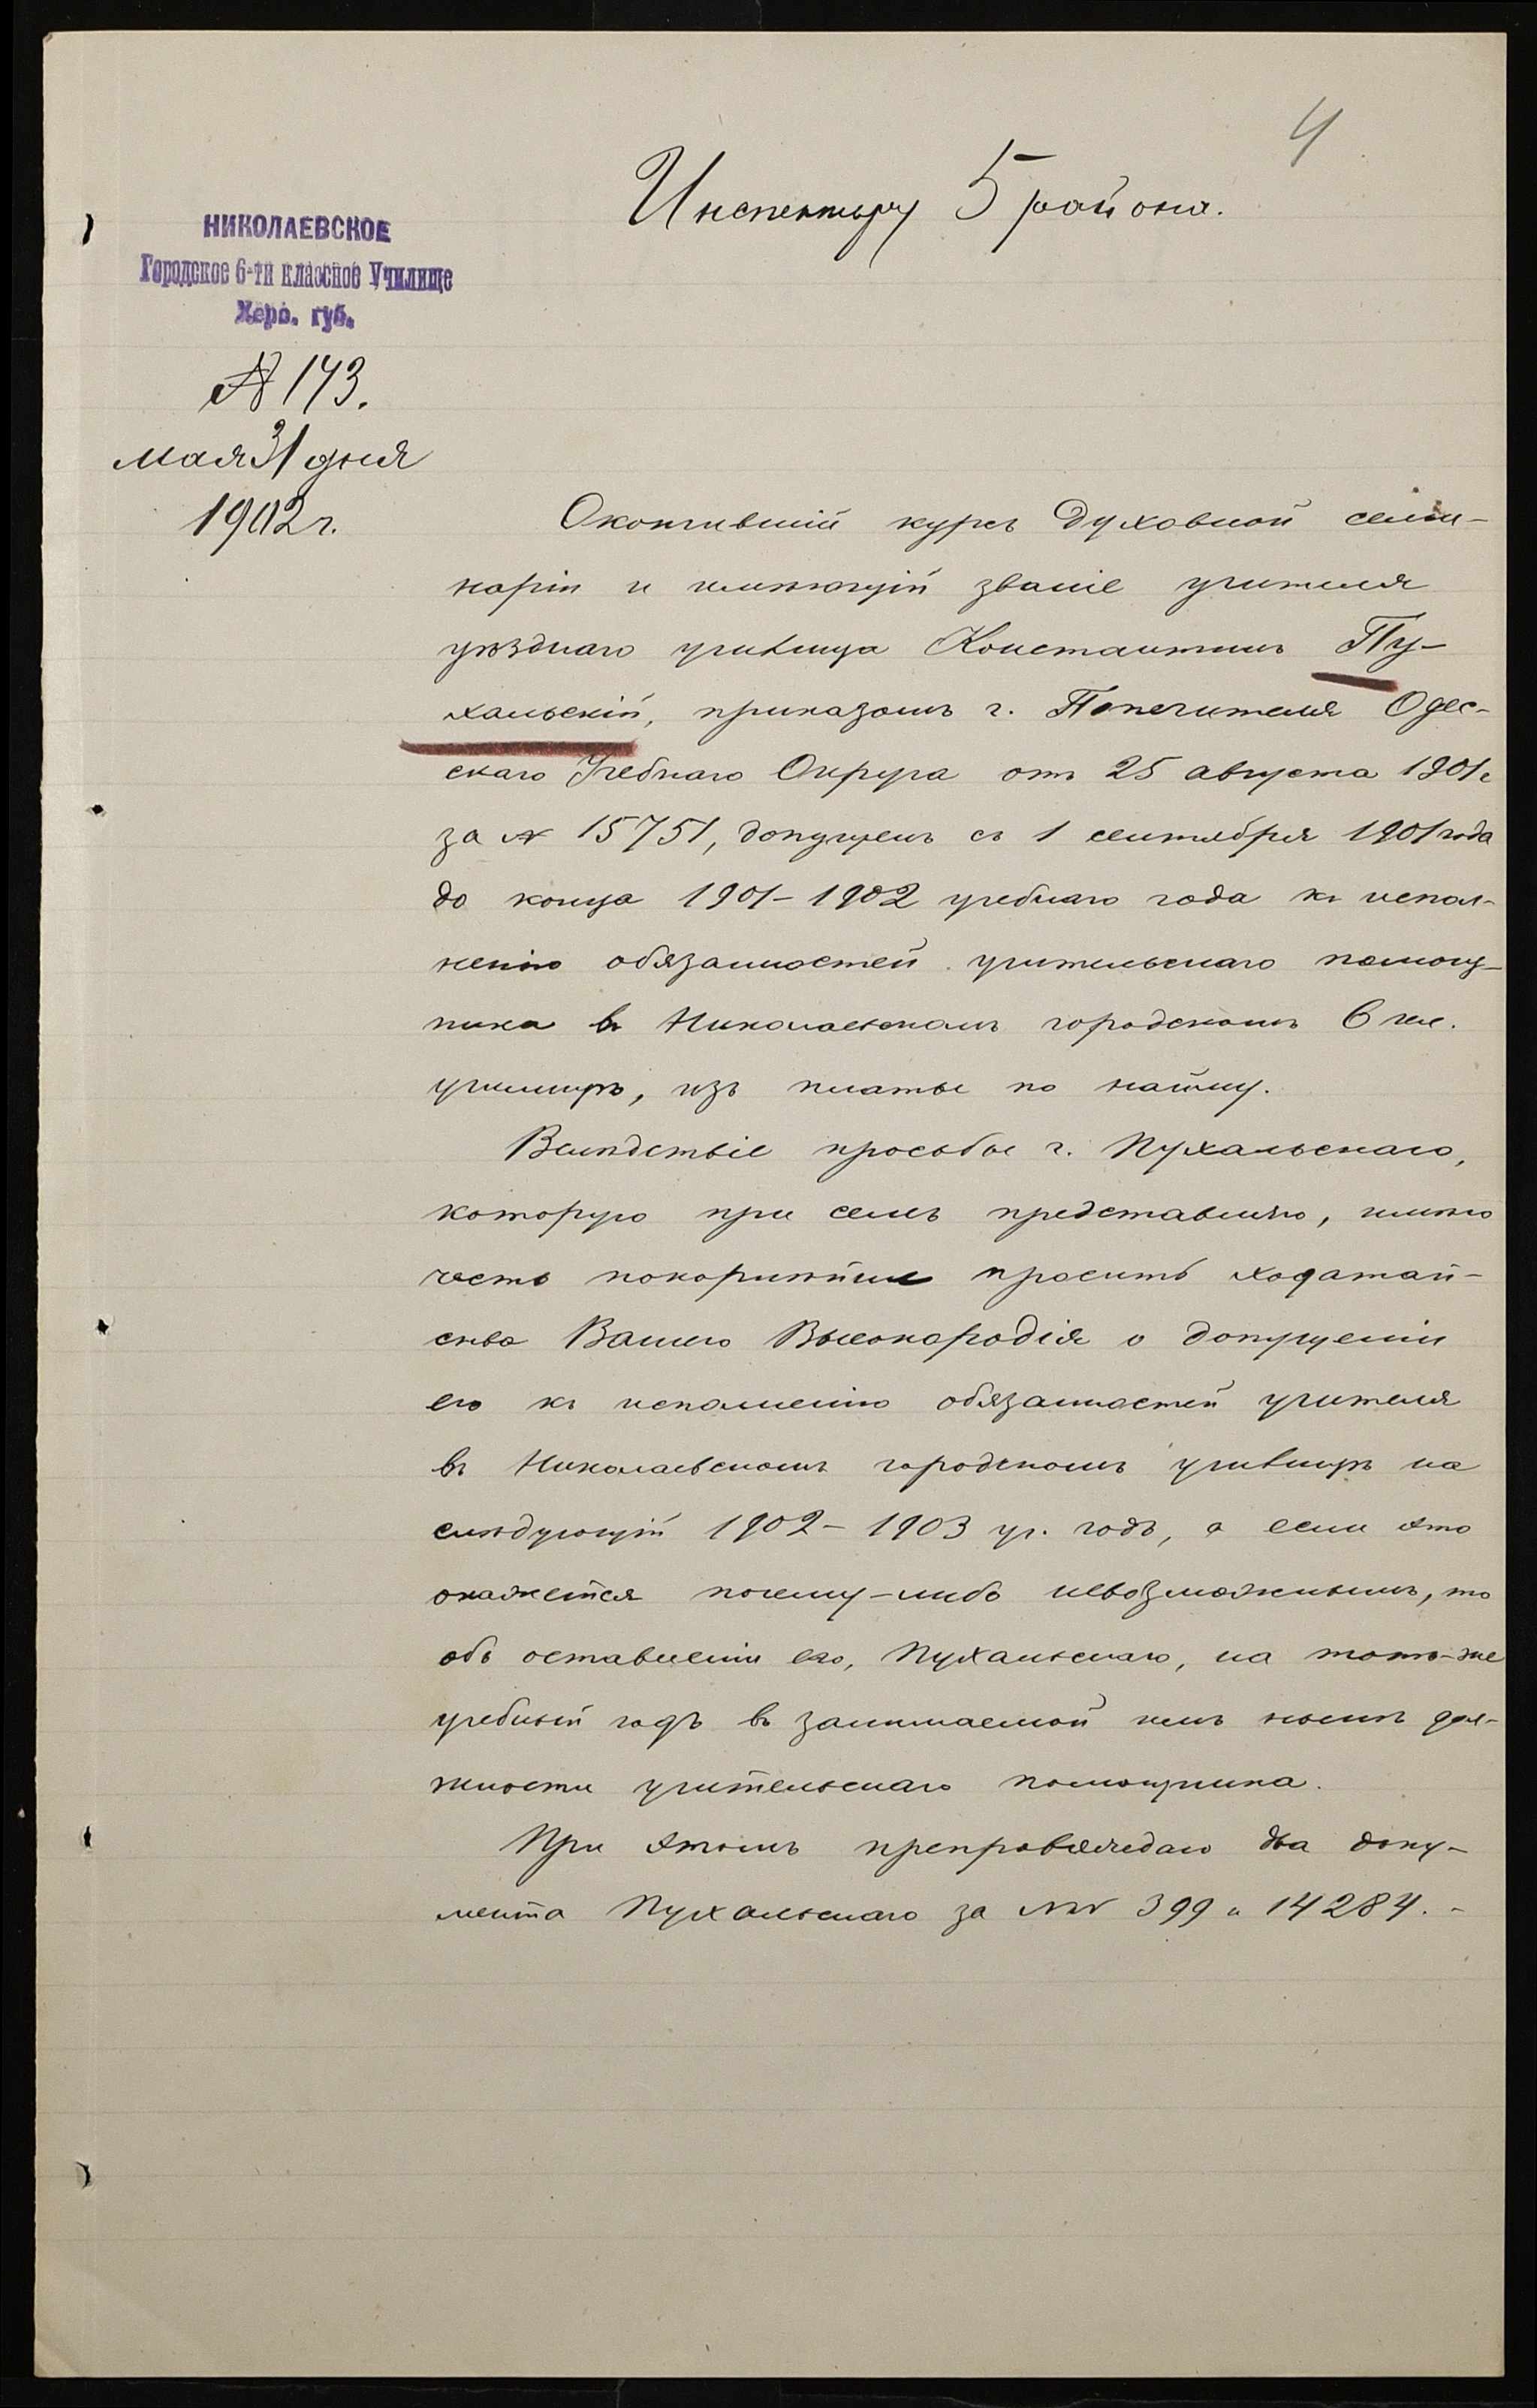 4
Инспектору 5 района.
НИКОЛАЕВСКОЕ
Городское 6-ти классное Училище
Херс. губ.
№ 143.
мая 31 дня
1902 г.
Окончившій курсъ Духовной семи-
наріи и имѣющій званіе учителя
уѣзднаго училища Константинъ Пу-
хальскій, приказомъ г. Попечителя Одес-
скаго Учебнаго Округа отъ 25 августа 1901 г
за № 15751, допущенъ съ 1 сентября 1901 года
до конца 1901-1902 учебнаго года къ испол-
ненію обязанностей учительскаго помощ-
ника въ Николаевскомъ городскомъ 6 кл.
училищѣ, изъ платы по найму.
Вслѣдствіе просьбы г. Пухальскаго,
которую при семъ представляю, имѣю
честь покорнѣйше просить ходатай-
ства Вашего Высокородія о допущеніи
его къ исполненію обязанностей учителя
въ Николаевскомъ городскомъ училищѣ на
слѣдующій 1902-1903 уч. годъ, а если это
окажется почему-либо невозможнымъ, то
объ оставленіи его, Пухальскаго, на тотъ-же
учебный годъ въ занимаемой имъ нынѣ дол-
жности учительскаго помощника.
При этомъ препровождаю два доку-
мента Пухальскаго за №№ 399 и 14284. -